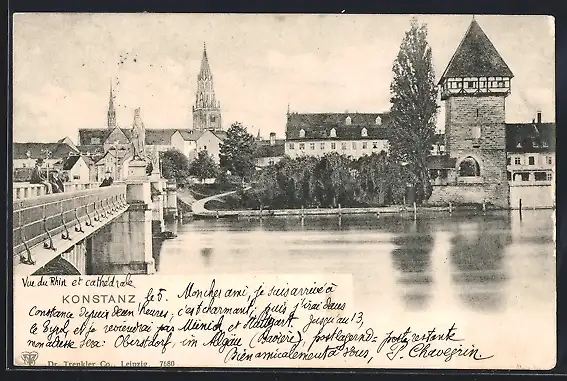 Vue du Rhin et cathédrale
KONSTANZ, le 5. Mon cher ami, je suis arrivé à
Constance depuis deux heures, c'est charmant, puis j'irai dans
le Tyrol et je reviendrai par Münich et Stuttgart. Jusqu'au 13,
mon adresse sera: Oberstdorf, im Allgäu (Bavière) postlagernd = poste restante
Bien amicalement à vous,
Dr. Trenkler Co., Leipzig. 7680